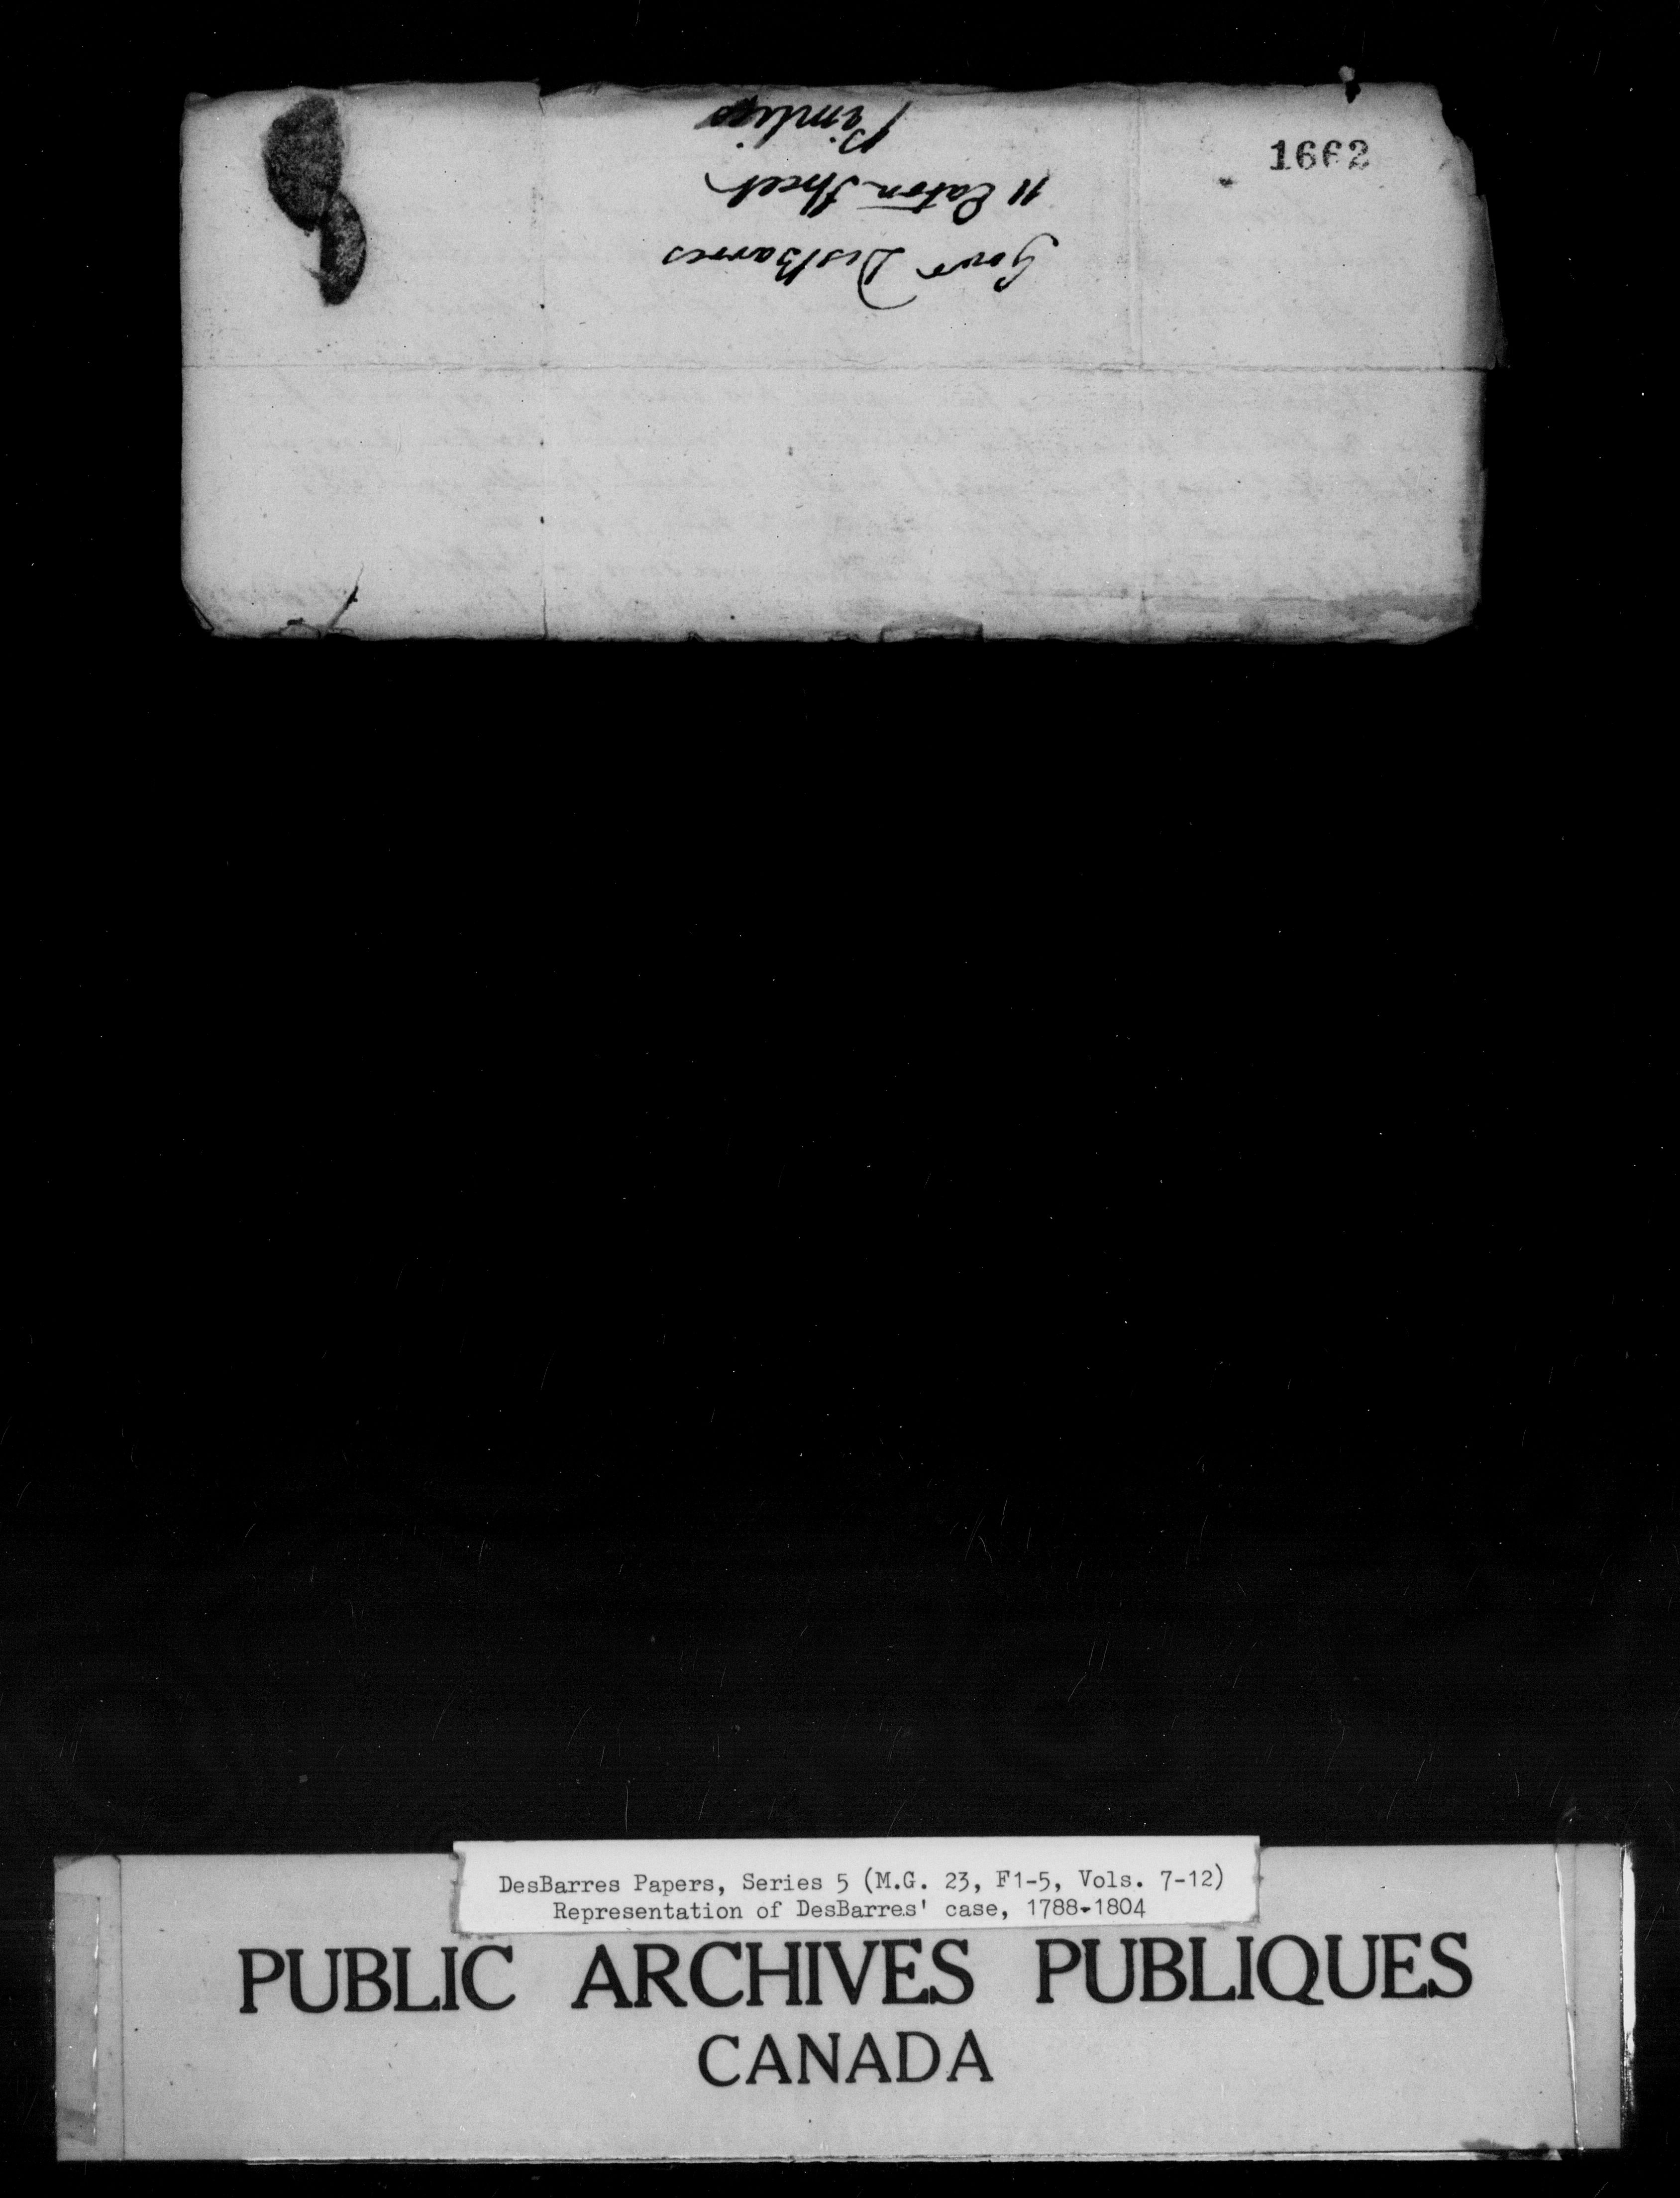 1662
Govr DesBarres
11 Eaton Street
Pimlico
DesBarres Papers, Series 5 (M.G. 23, F1-5, Vols. 7-12)
Representation of DesBarres' case, 1788-1804
PUBLIC ARCHIVES PUBLIQUES
CANADA